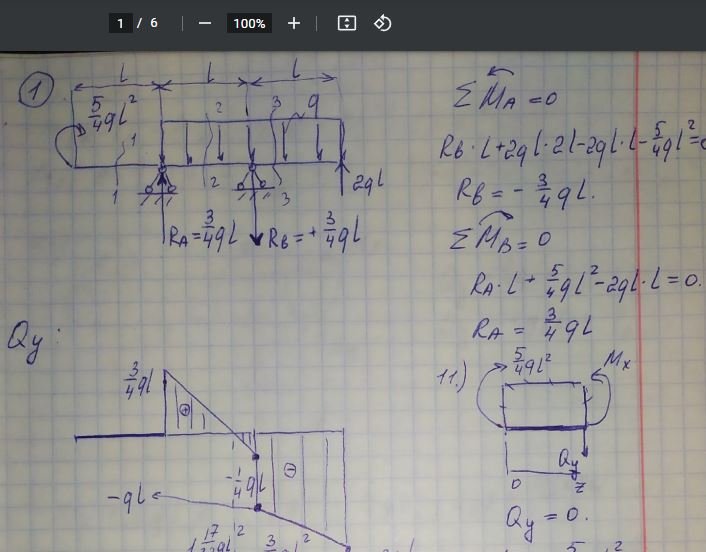 1 / 6
100%
①
l l l
5/4 ql²
1 2 3 q
1 2 3
2ql
R_A = 3/4 ql
R_B = + 3/4 ql
ΣM_A = 0
R_B · l + 2ql · 2l - 2ql · l - 5/4 ql² =
R_B = - 3/4 ql.
ΣM_B = 0
R_A · l + 5/4 ql² - 2ql · l = 0.
R_A = 3/4 ql
Qy:
3/4 ql
⊕
⊖
-1/4 ql
-ql
11.)
5/4 ql²
Mx
Qy
0 z
Qy = 0.